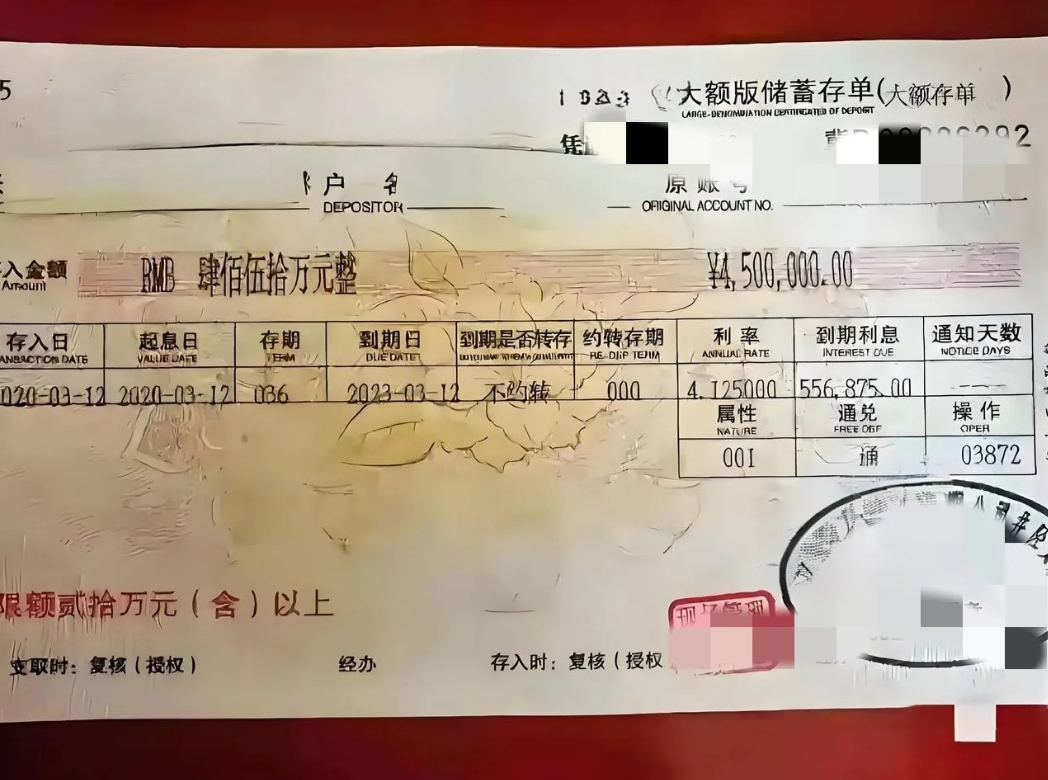 5
大额版储蓄存单(大额存单 )
LARGE-DENOMINATION CERTIFICATED OF DEPOSIT
凭
户 名
DEPOSITOR
原账号
ORIGINAL ACCOUNT NO.
入金额
Amount
RMB 肆佰伍拾万元整
¥4,500,000.00
存入日 起息日 存期 到期日 到期是否转存 约转存期 利率 到期利息 通知天数
VALUE DATE TERM DUE DATE ANNUAL RATE INTEREST DUE NOTICE DAYS
020-03-12 2020-03-12 036 2023-03-12 不约转 000 4.125000 556,875.00 ——
属性 通兑 操作
NATURE OPER
001 通 03872
限额贰拾万元(含)以上
支取时:复核(授权) 经办 存入时:复核(授权